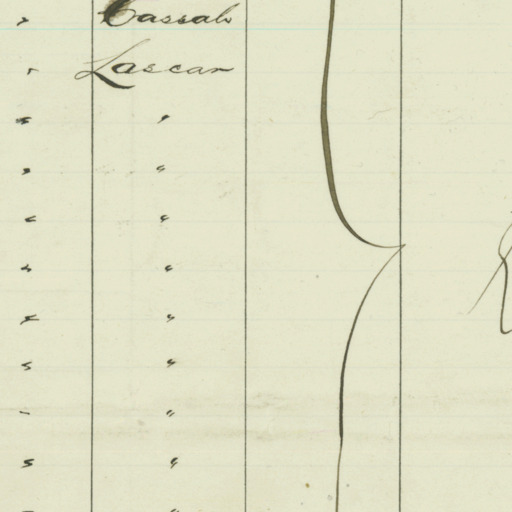 " Cassab
" Lascar
" "
" "
" "
" "
" "
" "
" "
" "
" "